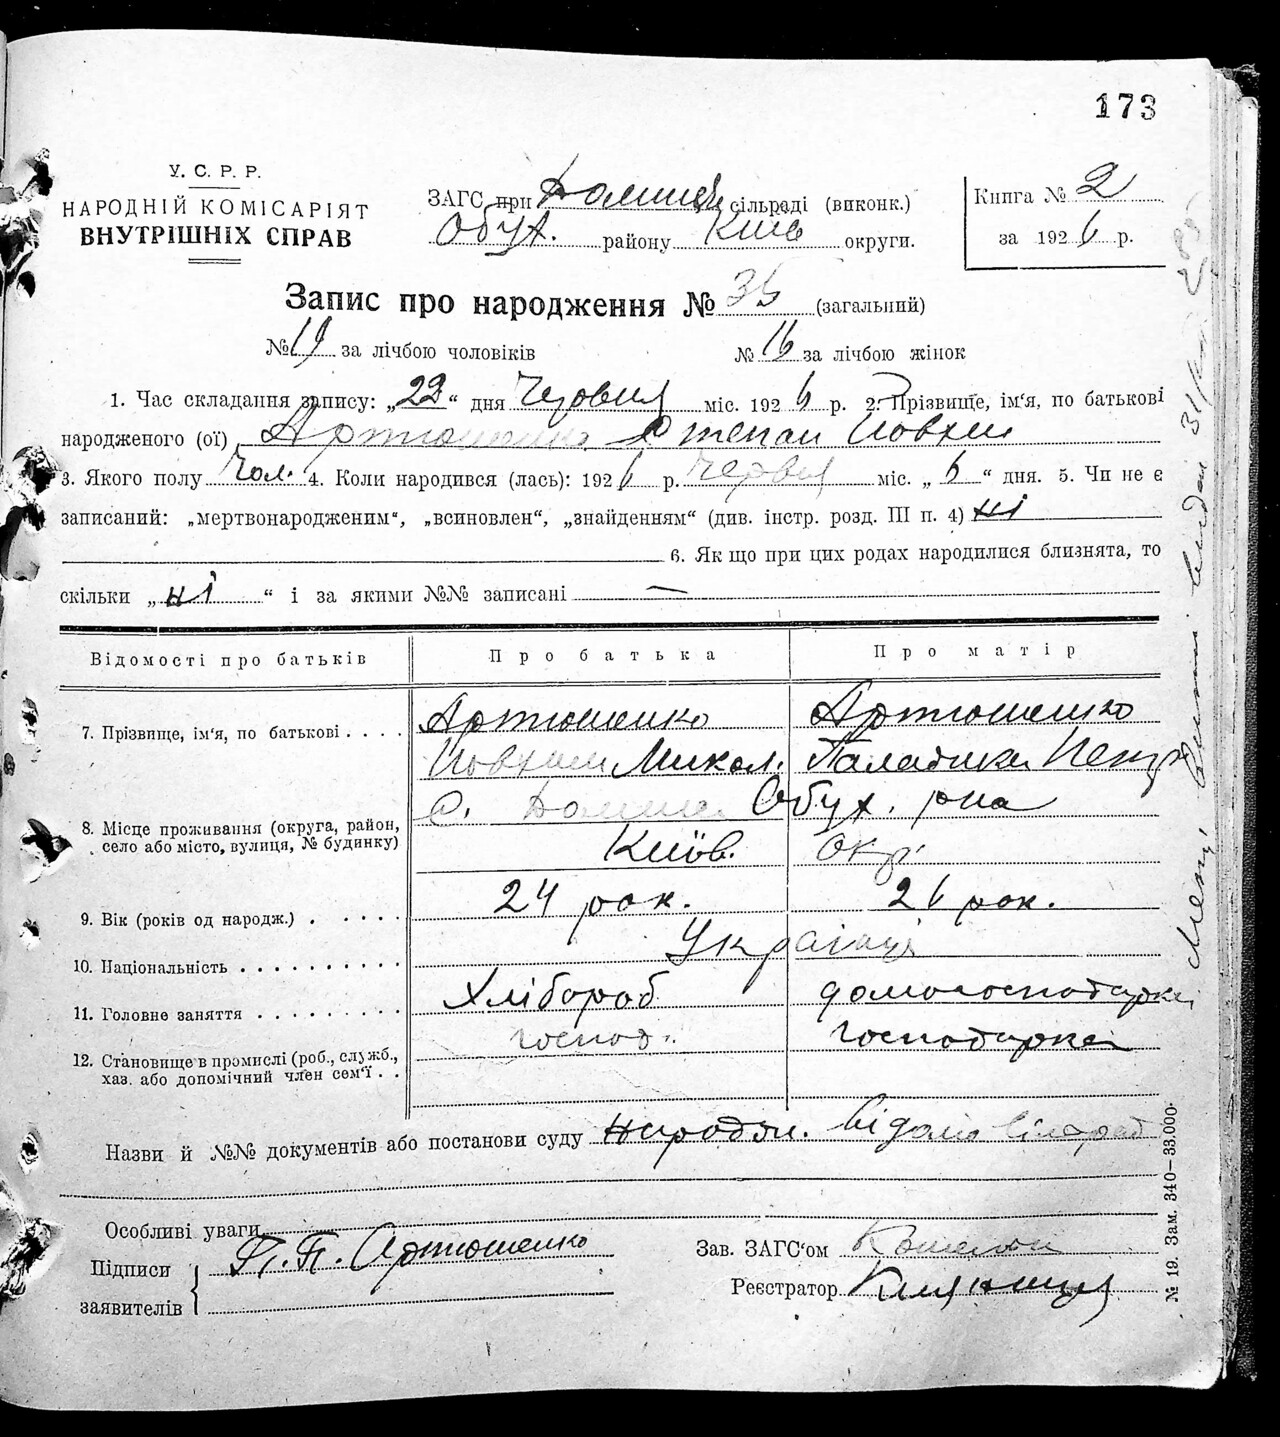 173
У. С. Р. Р.
НАРОДНІЙ КОМІСАРІЯТ
ВНУТРІШНІХ СПРАВ
ЗАГС при сільраді (виконк.)
Обух. району Київ округи.
Книга № 2
за 1926 р.
Запис про народження № 35 (загальний)
№ 19 за лічбою чоловіків № 16 за лічбою жінок
1. Час складання запису: „22“ дня Червня міс. 1926 р. 2. Прізвище, ім'я, по батькові
народженого (ої) Артюшенко Степан Йовхим
3. Якого полу Чол. 4. Коли народився (лась): 1926 р. Червня міс. „6“ дня. 5. Чи не є
записаний: „мертвонародженим“, „всиновлен“, „знайденням“ (див. інстр. розд. III п. 4) ні
6. Як що при цих родах народилися близнята, то
скільки „ні“ і за якими №№ записані —
Відомості про батьків Про батька Про матір
7. Прізвище, ім'я, по батькові . . . . Артюшенко Артюшенко
Йовхим Микол. Палажка
8. Місце проживання (округа, район, село або місто, вулиця, № будинку) с. Обух. р-на
Київ. окр.
9. Вік (років од народж.) . . . . . 24 рок. 26 рок.
10. Національність . . . . . . . . . . Українці
11. Головне заняття . . . . . . . . . Хлібороб домогосподарка
12. Становище в промислі (роб., служб., хаз. або допомічний член сем'ї . . господ. господарка
Назви й №№ документів або постанови суду народж. відомо сільраді
Особливі уваги
Підписи заявителів П. П. Артюшенко
Зав. ЗАГС'ом
Реєстратор
№ 19. Зам. 340—33.000.